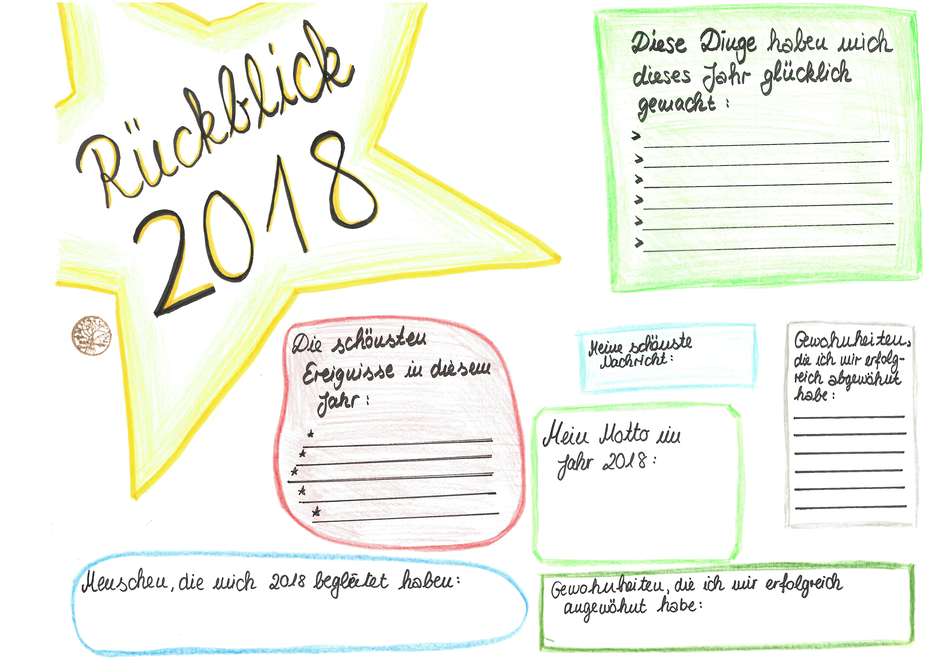 Rückblick
2018
Diese Dinge haben mich
dieses Jahr glücklich
gemacht:
Die schönsten
Ereignisse in diesem
Jahr:
Meine schönste
Nachricht:
Gewohnheiten,
die ich mir erfolg-
reich abgewöhnt
habe:
Mein Motto im
Jahr 2018:
Menschen, die mich 2018 begleitet haben:
Gewohnheiten, die ich mir erfolgreich
angewöhnt habe: